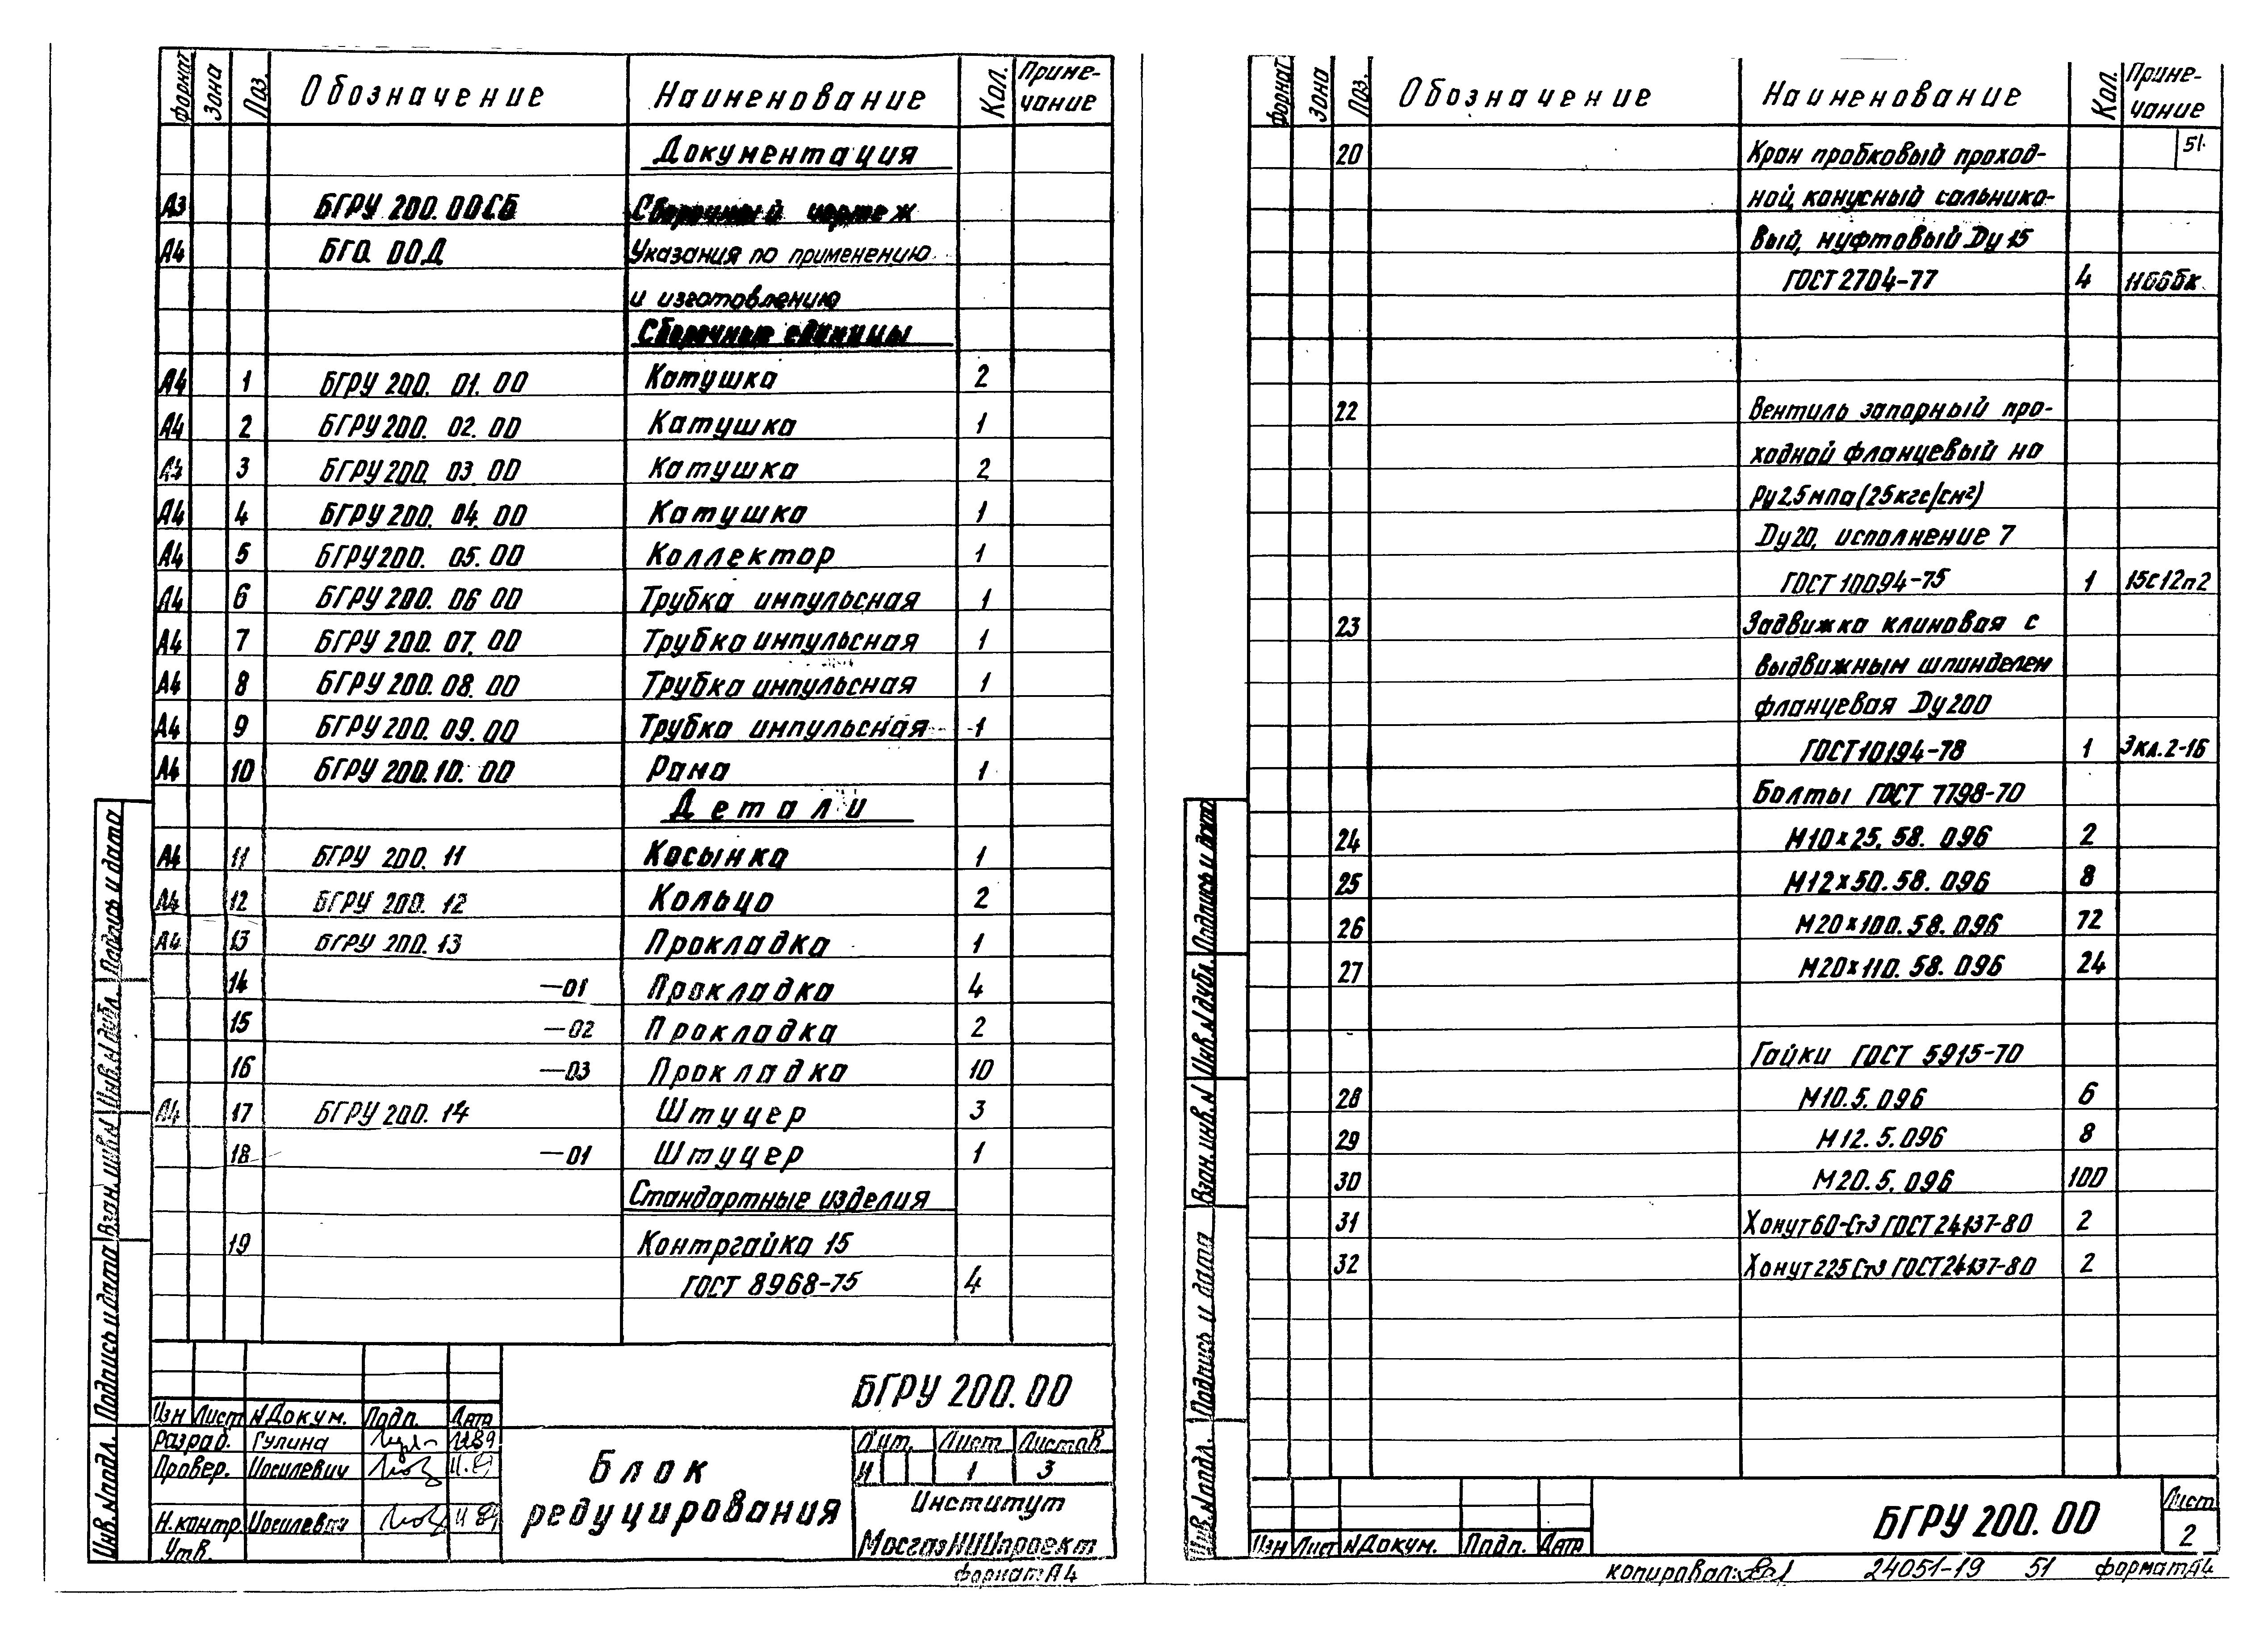 Формат Зона Поз. Обозначение Наименование Кол. Приме-
чание
Документация
А3 БГРУ 200.00СБ Сборочный чертеж
А4 БГО.00Д Указания по применению
и изготовлению
Сборочные единицы
А4 1 БГРУ 200. 01. 00 Катушка 2
А4 2 БГРУ 200. 02. 00 Катушка 1
А4 3 БГРУ 200. 03. 00 Катушка 2
А4 4 БГРУ 200. 04. 00 Катушка 1
А4 5 БГРУ 200. 05. 00 Коллектор 1
А4 6 БГРУ 200. 06 00 Трубка импульсная 1
А4 7 БГРУ 200. 07. 00 Трубка импульсная 1
А4 8 БГРУ 200. 08. 00 Трубка импульсная 1
А4 9 БГРУ 200. 09. 00 Трубка импульсная 1
А4 10 БГРУ 200.10. 00 Рама 1
Детали
А4 11 БГРУ 200. 11 Косынка 1
А4 12 БГРУ 200. 12 Кольцо 2
А4 13 БГРУ 200. 13 Прокладка 1
14 —01 Прокладка 4
15 —02 Прокладка 2
16 —03 Прокладка 10
А4 17 БГРУ 200. 14 Штуцер 3
18 —01 Штуцер 1
Стандартные изделия
19 Контргайка 15
ГОСТ 8968-75 4
Подпись и дата
Инв.№дубл.
Взам.инв.№
Подпись и дата
Инв.№подл.
БГРУ 200.00
Изм Лист №Докум. Подп. Дата
Разраб. Гулина 11.89
Провер. Иосилевич 11.89
Н.контр. Иосилевич 11 89
Утв.
Блок
редуцирования
Лит. Лист Листов
И 1 3
Институт
МосгазНИИпроект
формат А4
Формат Зона Поз. Обозначение Наименование Кол. Приме-
чание
51.
20 Кран пробковый проход-
ной, конусный сальнико-
вый, муфтовый Ду 15
ГОСТ 2704-77 4 11Б6бк
22 Вентиль запорный про-
ходной фланцевый на
Ру2.5мпа(25кгс/см²)
Ду20, исполнение 7
ГОСТ 10094-75 1 15с12п2
23 Задвижка клиновая с
выдвижным шпинделем
фланцевая Ду200
ГОСТ10194-78 1 Зкл.2-16
Болты ГОСТ 7798-70
24 М10х25. 58. 096 2
25 М12х50. 58. 096 8
26 М20х100. 58. 096 72
27 М20х110. 58. 096 24
Гайки ГОСТ 5915-70
28 М10. 5. 096 6
29 М12. 5. 096 8
30 М20. 5. 096 100
31 Хомут60-Ст3 ГОСТ 24137-80 2
32 Хомут225Ст3 ГОСТ24137-80 2
Подпись и дата
Инв.№дубл.
Взам.инв.№
Подпись и дата
Инв.№подл.
Изм Лист №Докум. Подп. Дата
БГРУ 200. 00
Лист
2
копировал: 24051-19 51 формат А4